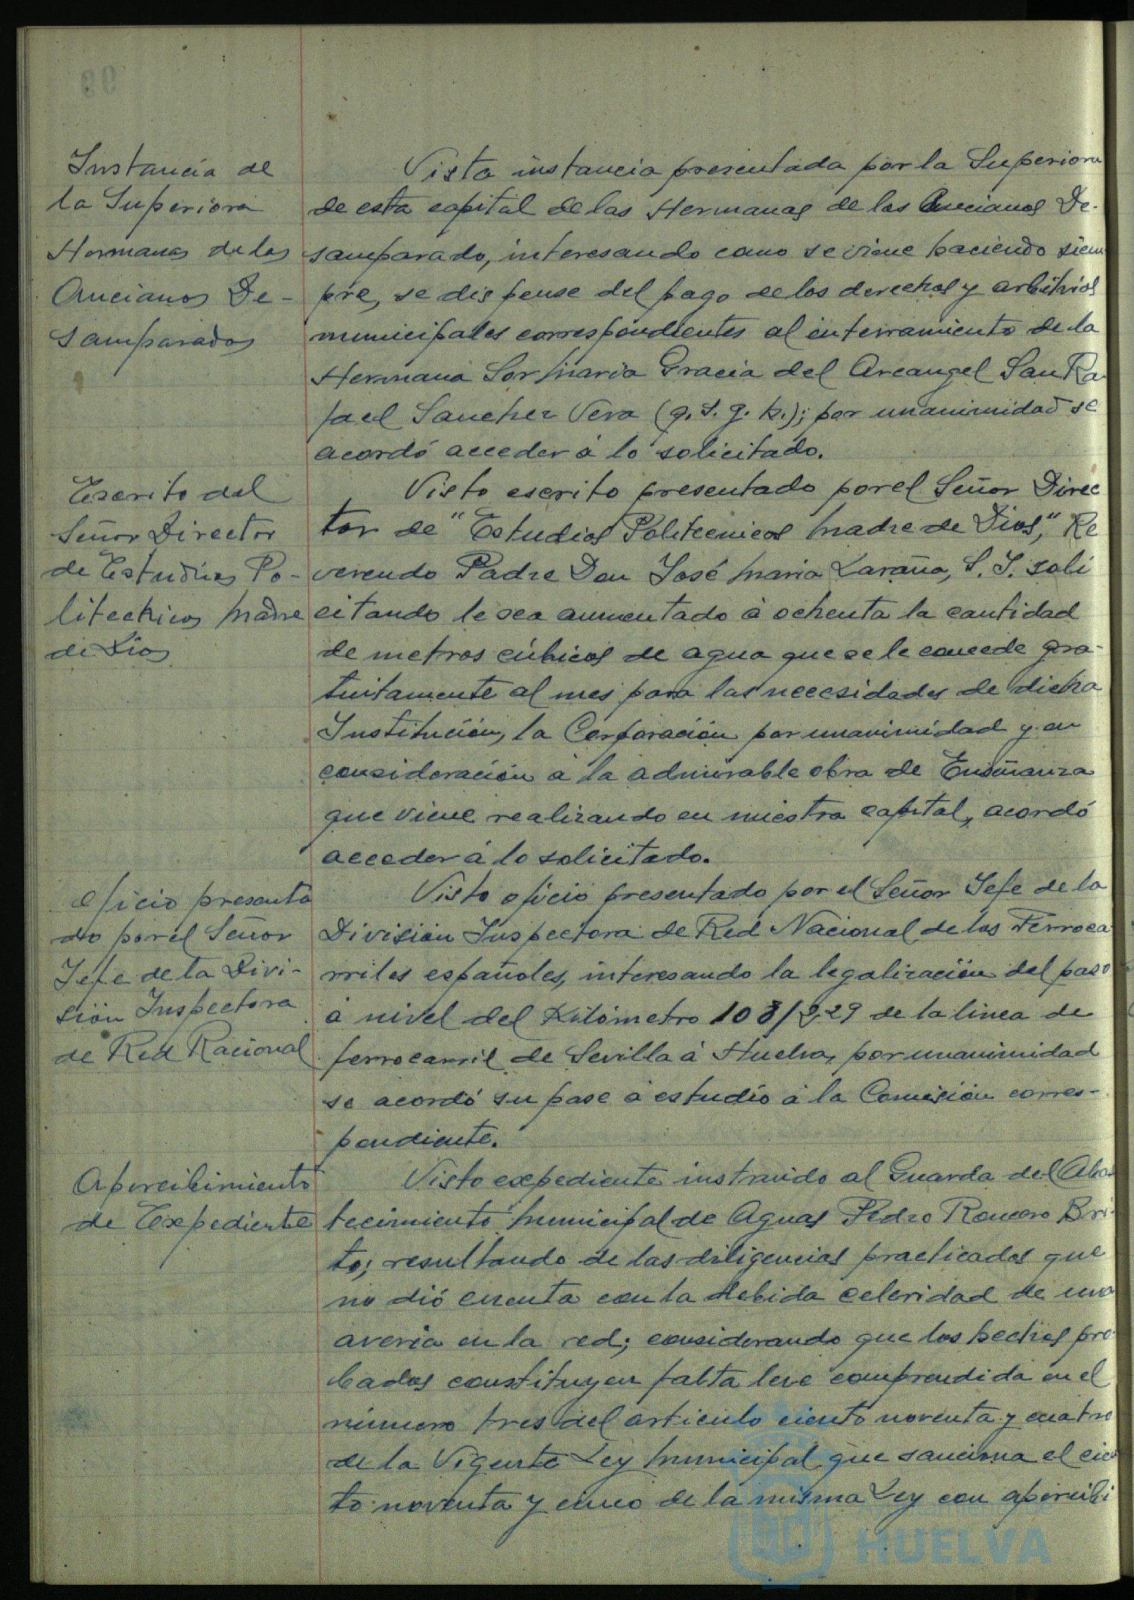 Instancia de
la Superiora
Hermanas de los
Ancianos De-
samparados
Vista instancia presentada por la Superiora
de esta capital de las Hermanas de los Ancianos De-
samparado, interesando como se viene haciendo siem
pre, se dispense del pago de los derechos y arbitrios
municipales correspondientes al enterramiento de la
Hermana Sor Maria Gracia del Arcangel San Ra
fael Sanchez Vera (q. s. g. h.); por unanimidad se
acordó acceder á lo solicitado.
Escrito del
Señor Director
de Estudios Po-
litechicos Madre
de Dios
Visto escrito presentado por el Señor Direc
tor de "Estudios Politecnicos Madre de Dios", Re
verendo Padre Don José Maria Laraña, S. J. soli
citando le sea aumentado á ochenta la cantidad
de metros cúbicos de agua que se le concede gra-
tuitamente al mes para las necesidades de dicha
Institución, la Corporación por unanimidad y en
consideración á la admirable obra de Enseñanza
que viene realizando en nuestra capital, acordó
acceder á lo solicitado.
Oficio presenta
do por el Señor
Jefe de la Divi-
sión Inspectora
de Red Nacional
Visto oficio presentado por el Señor Jefe de la
División Inspectora de Red Nacional de los Ferroca
rriles españoles, interesando la legalización del paso
á nivel del Kilómetro 108/229 de la linea de
ferrocarril de Sevilla á Huelva, por unanimidad
se acordó su pase á estudio á la Comisión corres-
pondiente.
Apercibimiento
de Expediente
Visto expediente instruido al Guarda del Abas
tecimiento Municipal de Aguas Pedro Romero Bri-
to; resultando de las diligencias practicadas que
no dió cuenta con la debida celeridad de una
averia en la red; considerando que los hechos pro
bados constituyen falta leve comprendida en el
número tres del articulo ciento noventa y cuatro
de la Vigente Ley Municipal que sanciona el cien
to noventa y cinco de la misma Ley con apercibi
HUELVA